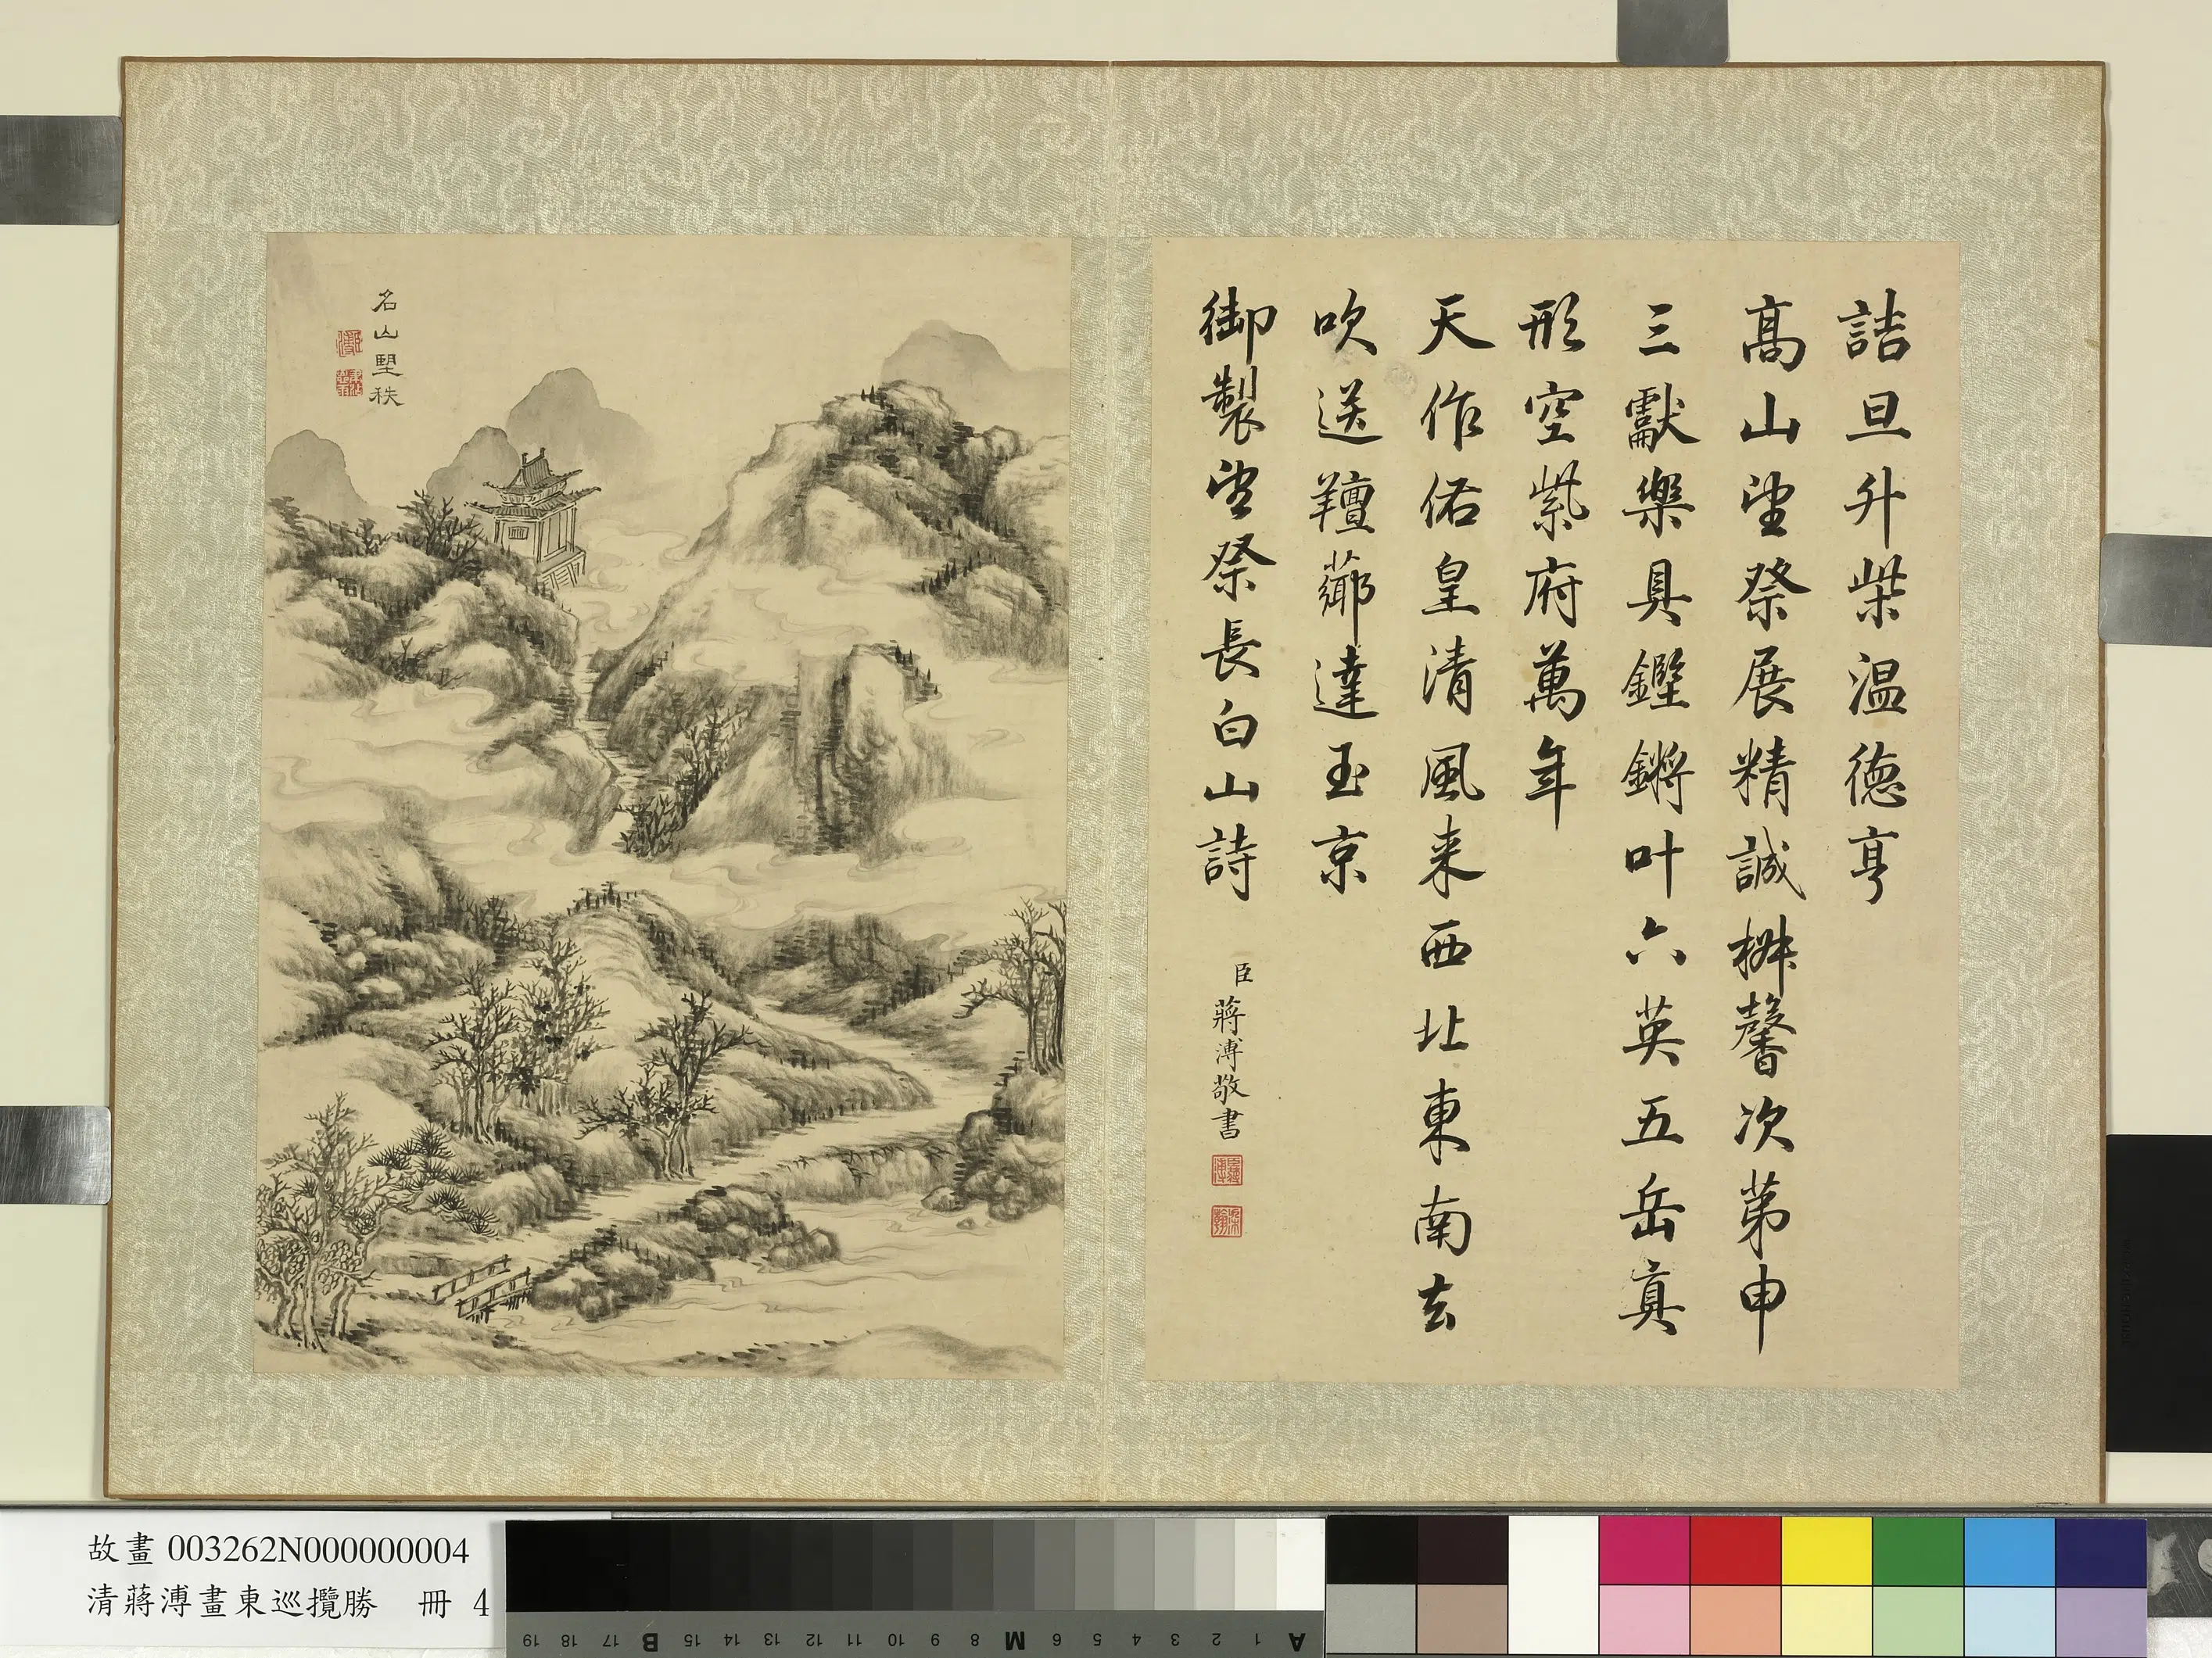 詰旦升柴温德亨
高山望祭展精誠椒馨次第申
三獻樂具鏗鏘叶六英五岳真
形空紫府萬年
天作佑皇清風来西北東南去
吹送羶薌達玉京
御製望祭長白山詩
臣蔣溥敬書
名山望秩
故畫 003262N000000004
清蔣溥畫東巡攬勝 冊 4
A 1 2 3 4 5 6 M 8 9 10 11 12 13 14 15 B 17 18 19